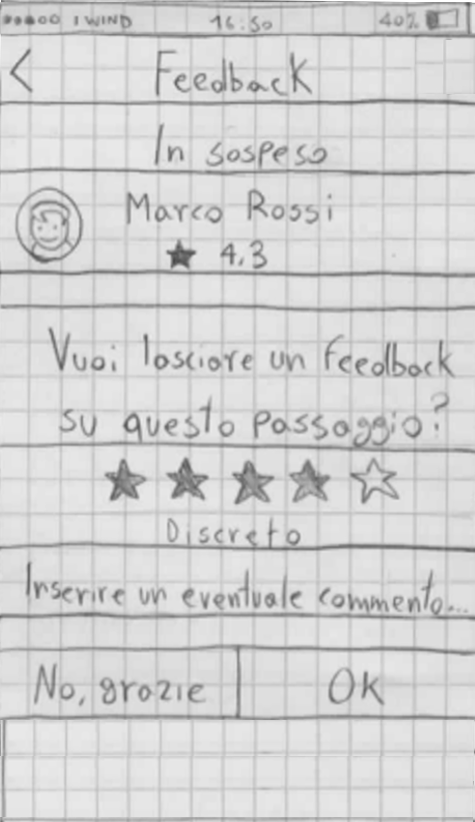 WIND 16:50 40%
< Feedback
In sospeso
Marco Rossi
★ 4.3
Vuoi lasciare un feedback
su questo passaggio?
Discreto
Inserire un eventuale commento...
No, grazie OK